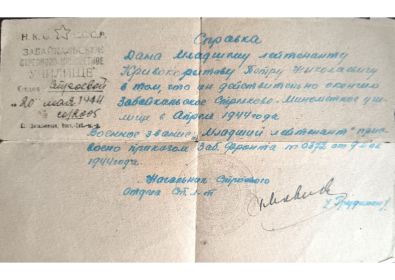 Н.К.О. СССР
ЗАБАЙКАЛЬСКОЕ
СТРЕЛКОВО-МИНОМЕТНОЕ
УЧИЛИЩЕ
Отдел Строевой
20 мая 1944
№
Справка
Дана Младшему лейтенанту
Кривокорытову Петру Николаевичу
в том, что он действительно окончил
Забайкальское Стрелково-Минометное учи-
лище в Апреле 1944 года
Военное звание „Младший лейтенант" присв-
оено приказом Заб. Фронта № 0372 от
1944 года.
Начальник Строевого
отдела Ст. л-т